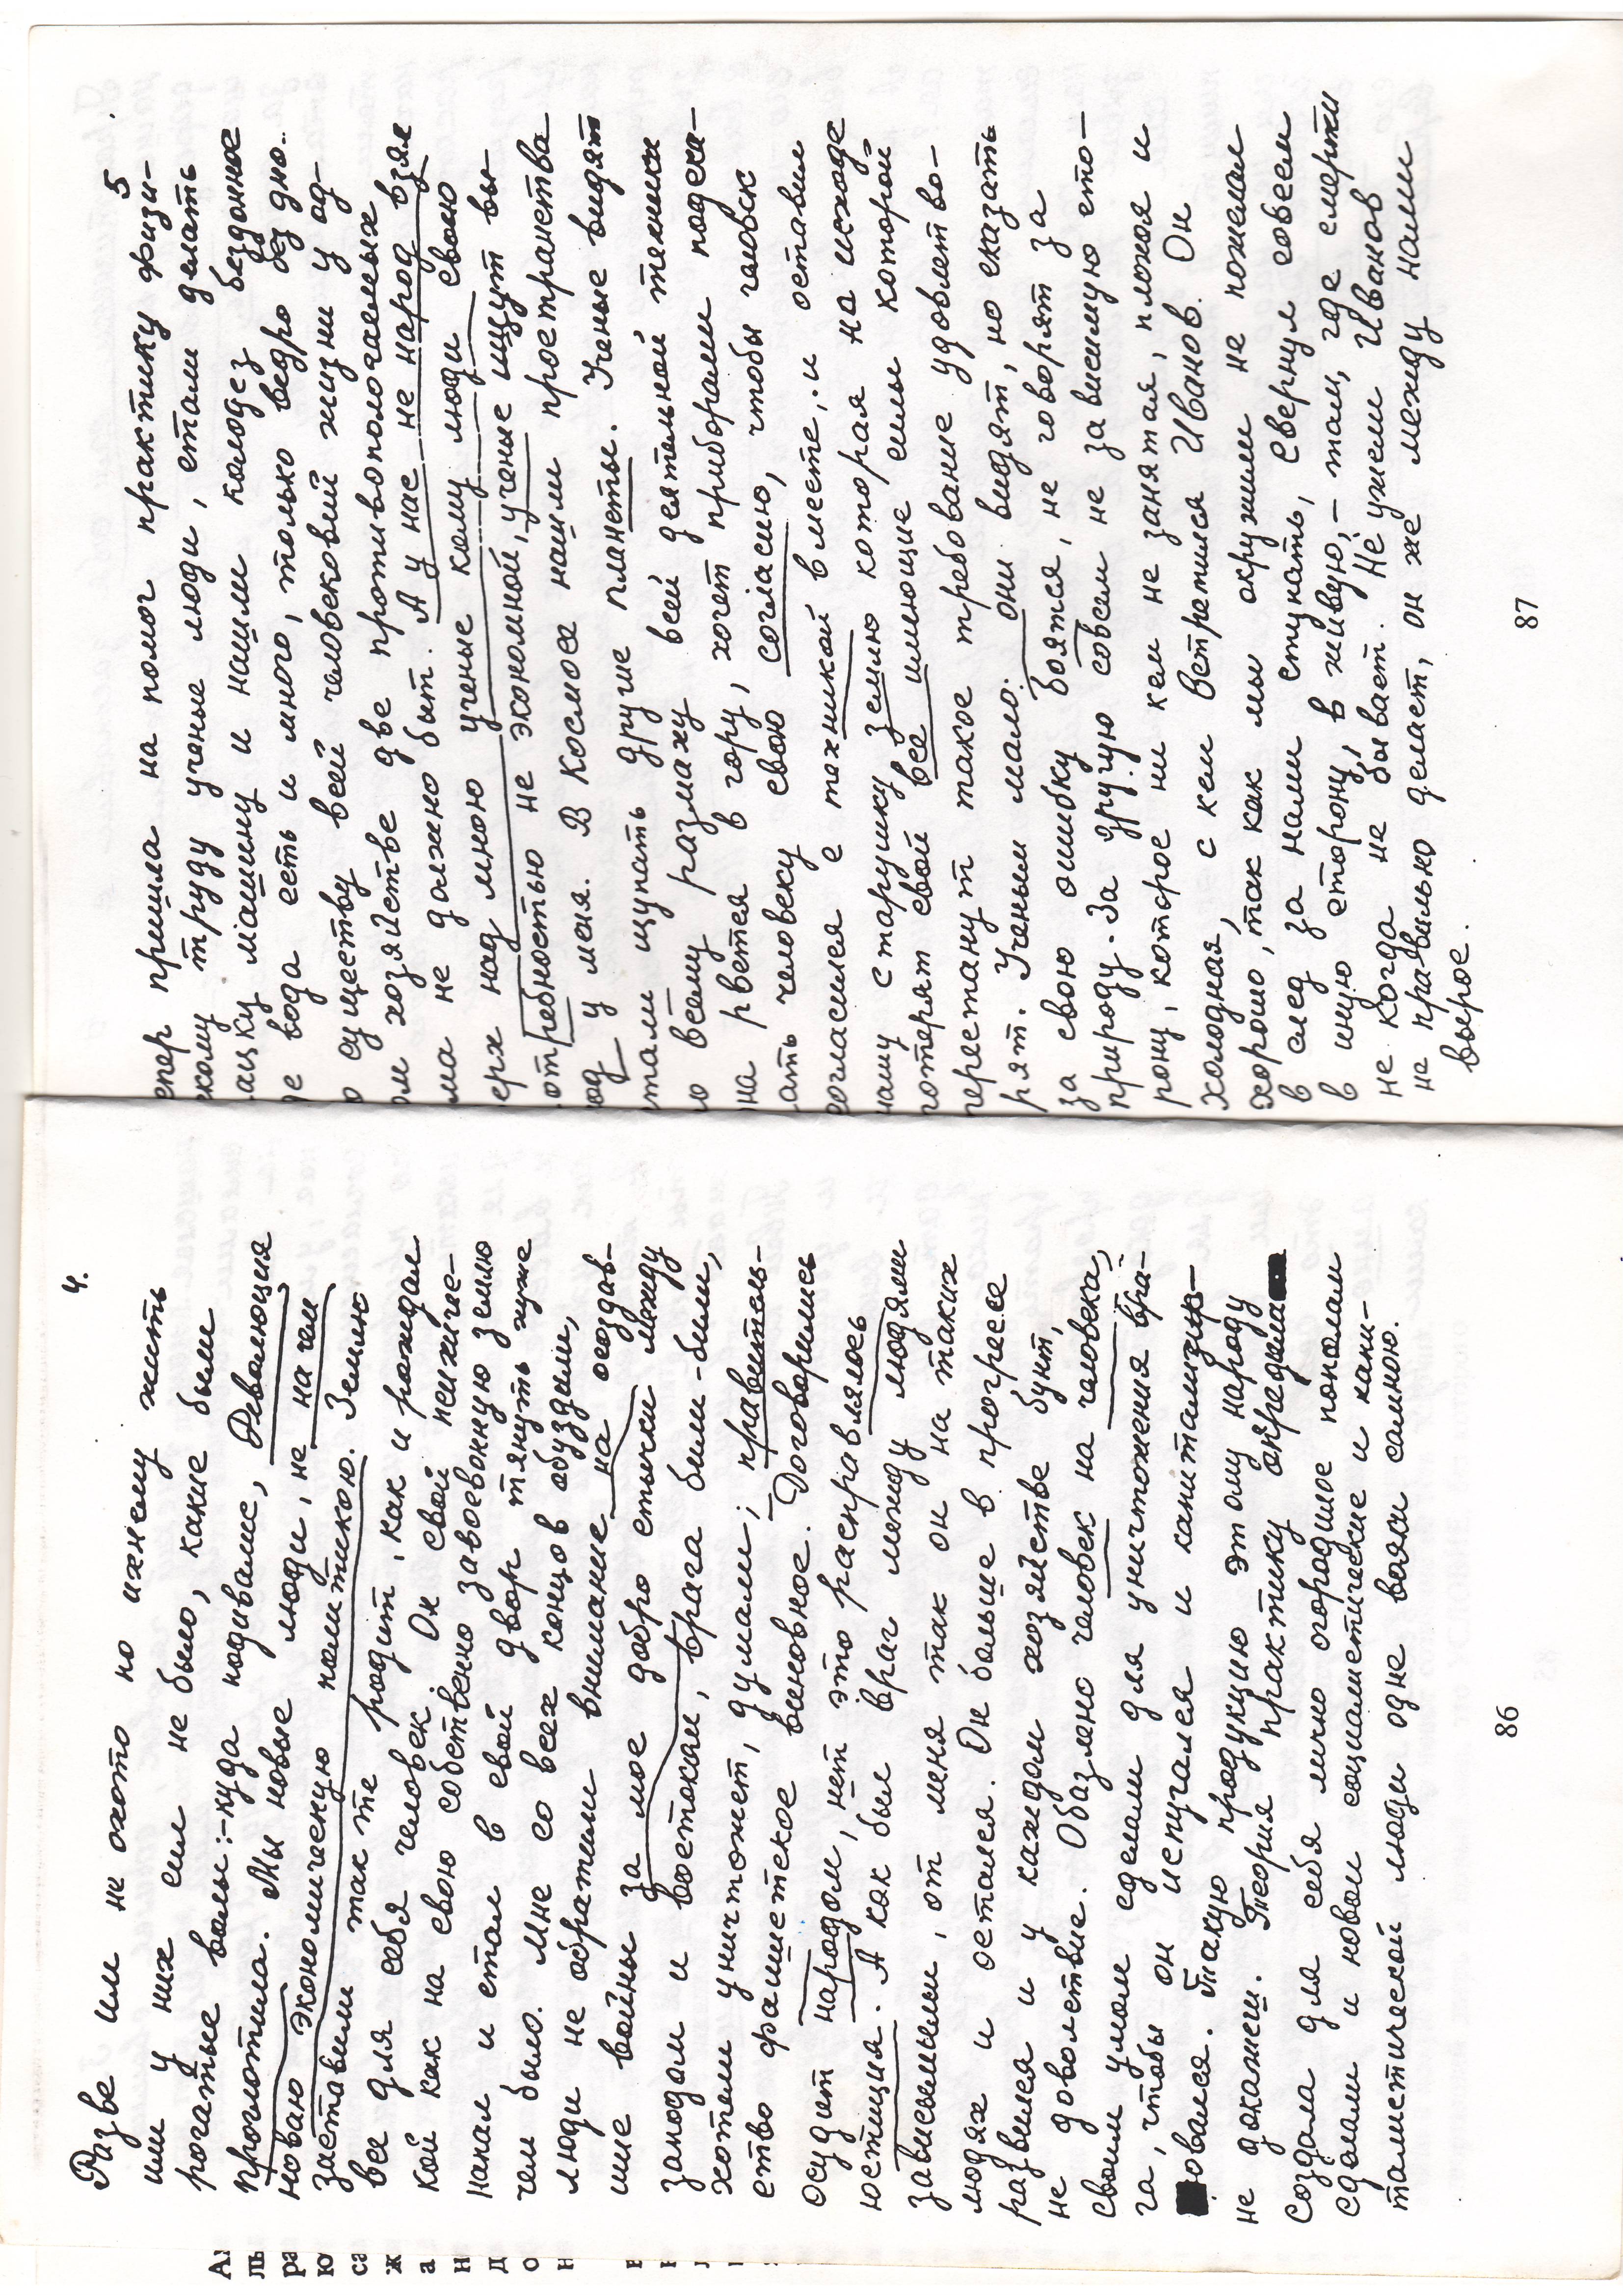 4.
Разве им не охото по ихнему жить
или у них сил не было, какие были
рогатые волы:-куда подивалис, Революция
проглотила. Мы новые люди, не на чем
новаю экономическую политикою. Землю
заставили так те родит, как и рождал
все для себя человек. Он свой психиче-
кой как на свою собственно завоевоную землю
напал и стал в свой двор тянуть хуже
чем было. Мне со всех концов обуздали,
люди не обратили внимание на создав-
шие войны за мое добро стычки между
западом и востокам, врага били-били,
хотели уничтожет, думали; правитель-
ство фашистское виновное. Договорились
осудит народом, нет это расправлялось
юстиция. А как был враг между людями
зависимыми, от меня так он на таких
людях и остался. Он больше в прогрессе
развился и у каждом хозяйстве бунт,
не доволствие. Обазлено человек на человека,
своим умом сделали для уничтожения вра-
га, чтобы он испугался и капитализир-
овался. Такую продукцию этому народу
не докажеш. Теория практику опредила
Создала для себя лично огородное пополам
сделали и новом социалистические и капи-
талистической люди одне вояки самною.
86
5
епер пришла на помог практику физи-
ескому труду ученые люди, стали делать
ацку машину и нашли колодез бездонное
де вода есть и много, только ведро без дно.
о существу всей человековий жизни у од-
ом хозяйстве две противопологаемых
ма не должно быт. А у нас не народ взял
ерх над мною ученые кому люди свою
отребностью не экономной, ученые ищут вы-
од у меня. В Космосе нашли пространства
тали щупать друше планеты. Ученые видят
о всему размаху всей деятельной техники
на рвется в гору, хочет приборами подска-
ать человеку свою согласию, чтобы человек
огласился с техникой вместе,.и оставил
нашу старушку землю которая на исходе
потерят свой все имеющие силы которой
перестанут такое требование удовлетво-
рят. Ученым мало. они видят, но сказать
за свою ошибку боятся, не говорят за
природу. За другую совсем не зависимую сто-
рону, которое ни кем не занятая, плохая и
холодная, с кем Встретился Иванов. Он
хорошо, так как мы окружили не пожелал
в след за нами ступать, свернул совсем
в иную сторону, в живую,- там, где смерти
не когда не бывает. Не ужели Иванов
не правильно делает, он же между нами
вырос.
87